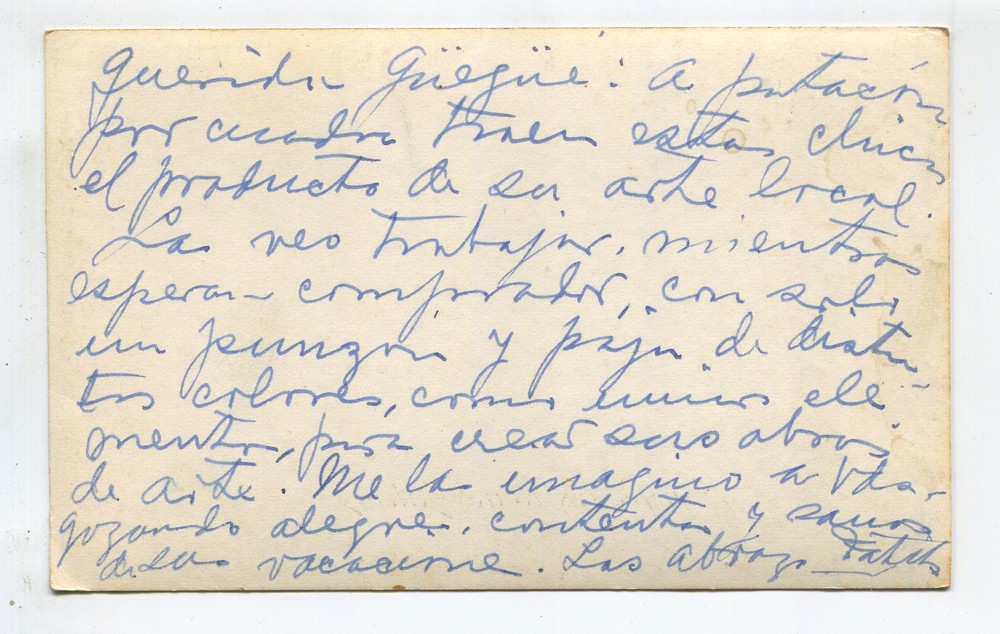 Querida Güegüe: A
por cuadra traen estas chicas
el producto de su arte local.
Las veo trabajar, mientras
esperan comprador, con solo
un punzon y paja de distin-
tos colores, como unicos ele
mentos, para crear sus obras
de arte. Me las imagino a Vds.
gozando alegres, contentas y sanas
de sus vacaciones. Las abraza